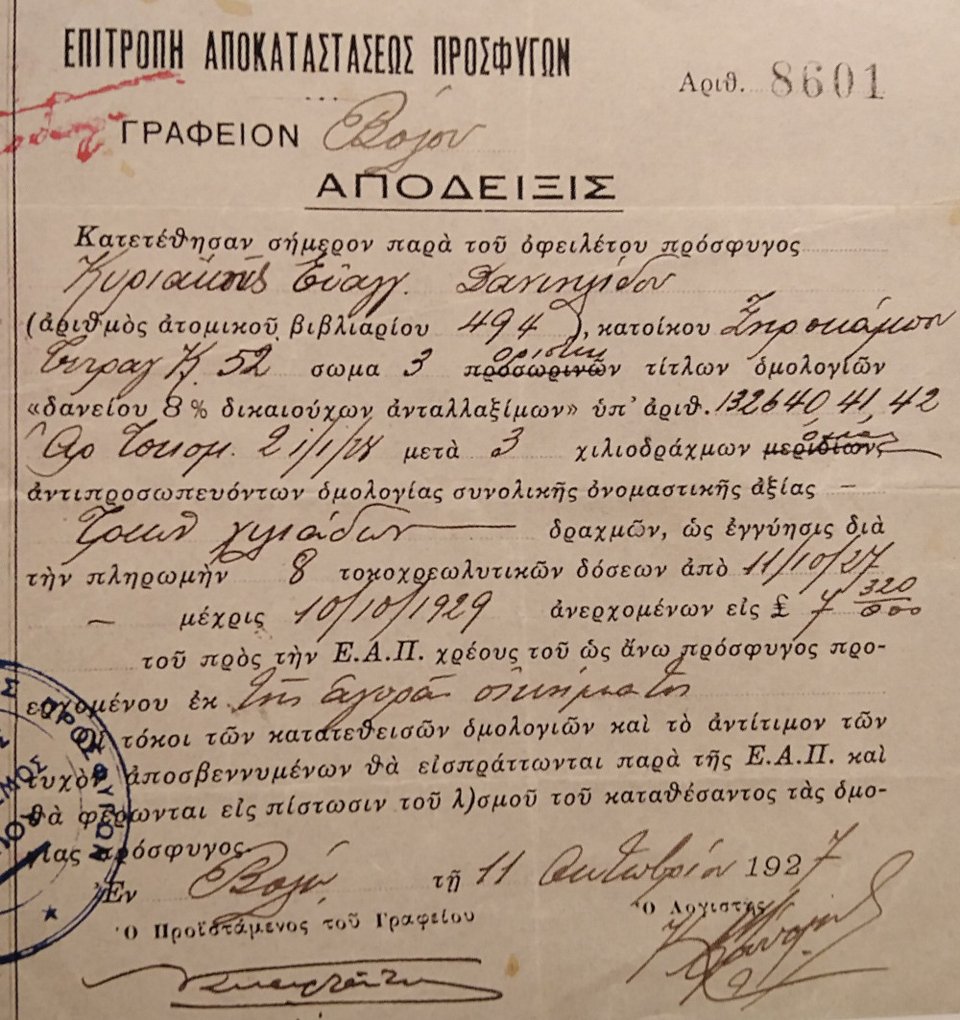 ΕΠΙΤΡΟΠΗ ΑΠΟΚΑΤΑΣΤΑΣΕΩΣ ΠΡΟΣΦΥΓΩΝ
Ἀριθ. 8601
ΓΡΑΦΕΙΟΝ Βόλου
ΑΠΟΔΕΙΞΙΣ
Κατετέθησαν σήμερον παρὰ τοῦ ὀφειλέτου πρόσφυγος
Κυριακῆς Εὐαγγ. Δανιηλίδου
(ἀριθμὸς ἀτομικοῦ βιβλιαρίου 494), κατοίκου Ξηροκάμπου
Τετραγ Κ. 52 σωμα 3 προσωρινῶν τίτλων ὁμολογιῶν
«δανείου 8% δικαιούχων ἀνταλλαξίμων» ὑπ' ἀριθ. 132640, 41, 42
Τοκομ. 21/1/28 μετὰ 3 χιλιοδράχμων μεριδίων
ἀντιπροσωπευόντων ὁμολογίας συνολικῆς ὀνομαστικῆς ἀξίας —
Τριῶν χιλιάδων δραχμῶν, ὡς ἐγγύησις διὰ
τὴν πληρωμὴν 8 τοκοχρεωλυτικῶν δόσεων ἀπὸ 11/10/27
— μέχρις 10/10/1929 ἀνερχομένων εἰς £ 7 320/000
τοῦ πρὸς τὴν Ε.Α.Π. χρέους τοῦ ὡς ἄνω πρόσφυγος προ-
ερχομένου ἐκ τῆς ἀγορᾶς οἰκήματος
Οἱ τόκοι τῶν κατατεθεισῶν ὁμολογιῶν καὶ τὸ ἀντίτιμον τῶν
τυχὸν ἀποσβεννυμένων θὰ εἰσπράττωνται παρὰ τῆς Ε.Α.Π. καὶ
θὰ φέρωνται εἰς πίστωσιν τοῦ λ)σμοῦ τοῦ καταθέσαντος τὰς ὁμο-
γίας πρόσφυγος.
Ἐν Βόλῳ τῇ 11 Ὀκτωβρίου 1927
Ὁ Προϊστάμενος τοῦ Γραφείου
Ὁ Λογιστής